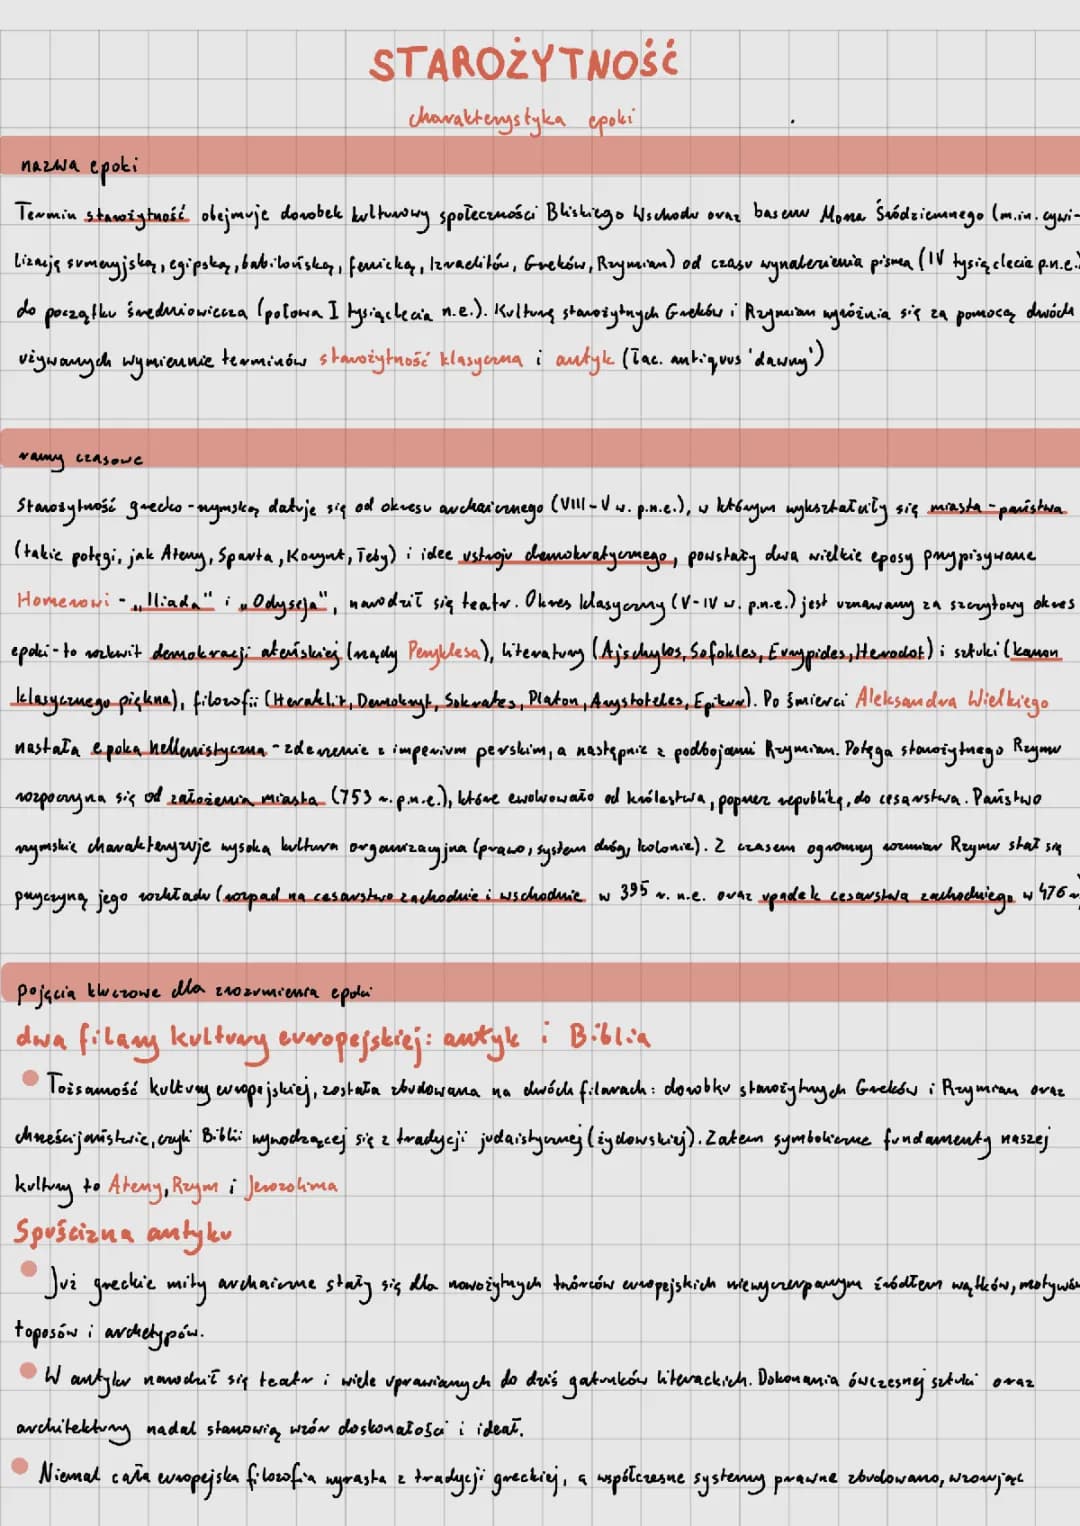 STAROŻYTNOŚĆ
charakterystyka epoki
nazwa epoki
Termin starożytność obejmuje dorobek kulturowy społeczności Bliskiego Wschodu oraz basenu Morza Śródziemnego (m.in. cywi-
lizację sumeryjską, egipską, babilońską, fenicką, Izraelitów, Greków, Rzymian) od czasu wynalezienia pisma (IV tysiąclecie p.n.e.)
do początku średniowiecza (połowa I tysiąclecia n.e.). Kulturę starożytnych Greków i Rzymian wyróżnia się za pomocą dwóch
używanych wymiennie terminów starożytność klasyczna i antyk (łac. antiquus 'dawny')
ramy czasowe
Starożytność grecko-rzymską datuje się od okresu archaicznego (VIII-V w. p.n.e.), w którym wykształciły się miasta-państwa
(takie potęgi, jak Ateny, Sparta, Korynt, Teby) i idee ustroju demokratycznego, powstały dwa wielkie eposy przypisywane
Homerowi - „Iliada" i „Odyseja", narodził się teatr. Okres klasyczny (V-IV w. p.n.e.) jest uznawany za szczytowy okres
epoki - to rozkwit demokracji ateńskiej (rządy Peryklesa), literatury (Ajschylos, Sofokles, Eurypides, Herodot) i sztuki (kanon
klasycznego piękna), filozofii (Heraklit, Demokryt, Sokrates, Platon, Arystoteles, Epikur). Po śmierci Aleksandra Wielkiego
nastała epoka hellenistyczna - zderzenie z imperium perskim, a następnie z podbojami Rzymian. Potęga starożytnego Rzymu
rozpoczyna się od założenia miasta (753 r. p.n.e.), które ewoluowało od królestwa, poprzez republikę, do cesarstwa. Państwo
rzymskie charakteryzuje wysoka kultura organizacyjna (prawo, system dróg, kolonie). Z czasem ogromny rozmiar Rzymu stał się
przyczyną jego rozkładu (rozpad na cesarstwo zachodnie i wschodnie w 395 r. n.e. oraz upadek cesarstwa zachodniego w 476 r.
pojęcia kluczowe dla zrozumienia epoki
dwa filary kultury europejskiej: antyk i Biblia
Tożsamość kultury europejskiej, została zbudowana na dwóch filarach: dorobku starożytnych Greków i Rzymian oraz
chrześcijaństwie, czyli Biblii wywodzącej się z tradycji judaistycznej (żydowskiej). Zatem symboliczne fundamenty naszej
kultury to Ateny, Rzym i Jerozolima
Spuścizna antyku
Już greckie mity archaiczne stały się dla nowożytnych twórców europejskich niewyczerpanym źródłem wątków, motywów
toposów i archetypów.
W antyku narodził się teatr i wiele uprawianych do dziś gatunków literackich. Dokonania ówczesnej sztuki oraz
architektury nadal stanowią wzór doskonałości i ideał.
Niemal cała europejska filozofia wyrasta z tradycji greckiej, a współczesne systemy prawne zbudowano, wzorując